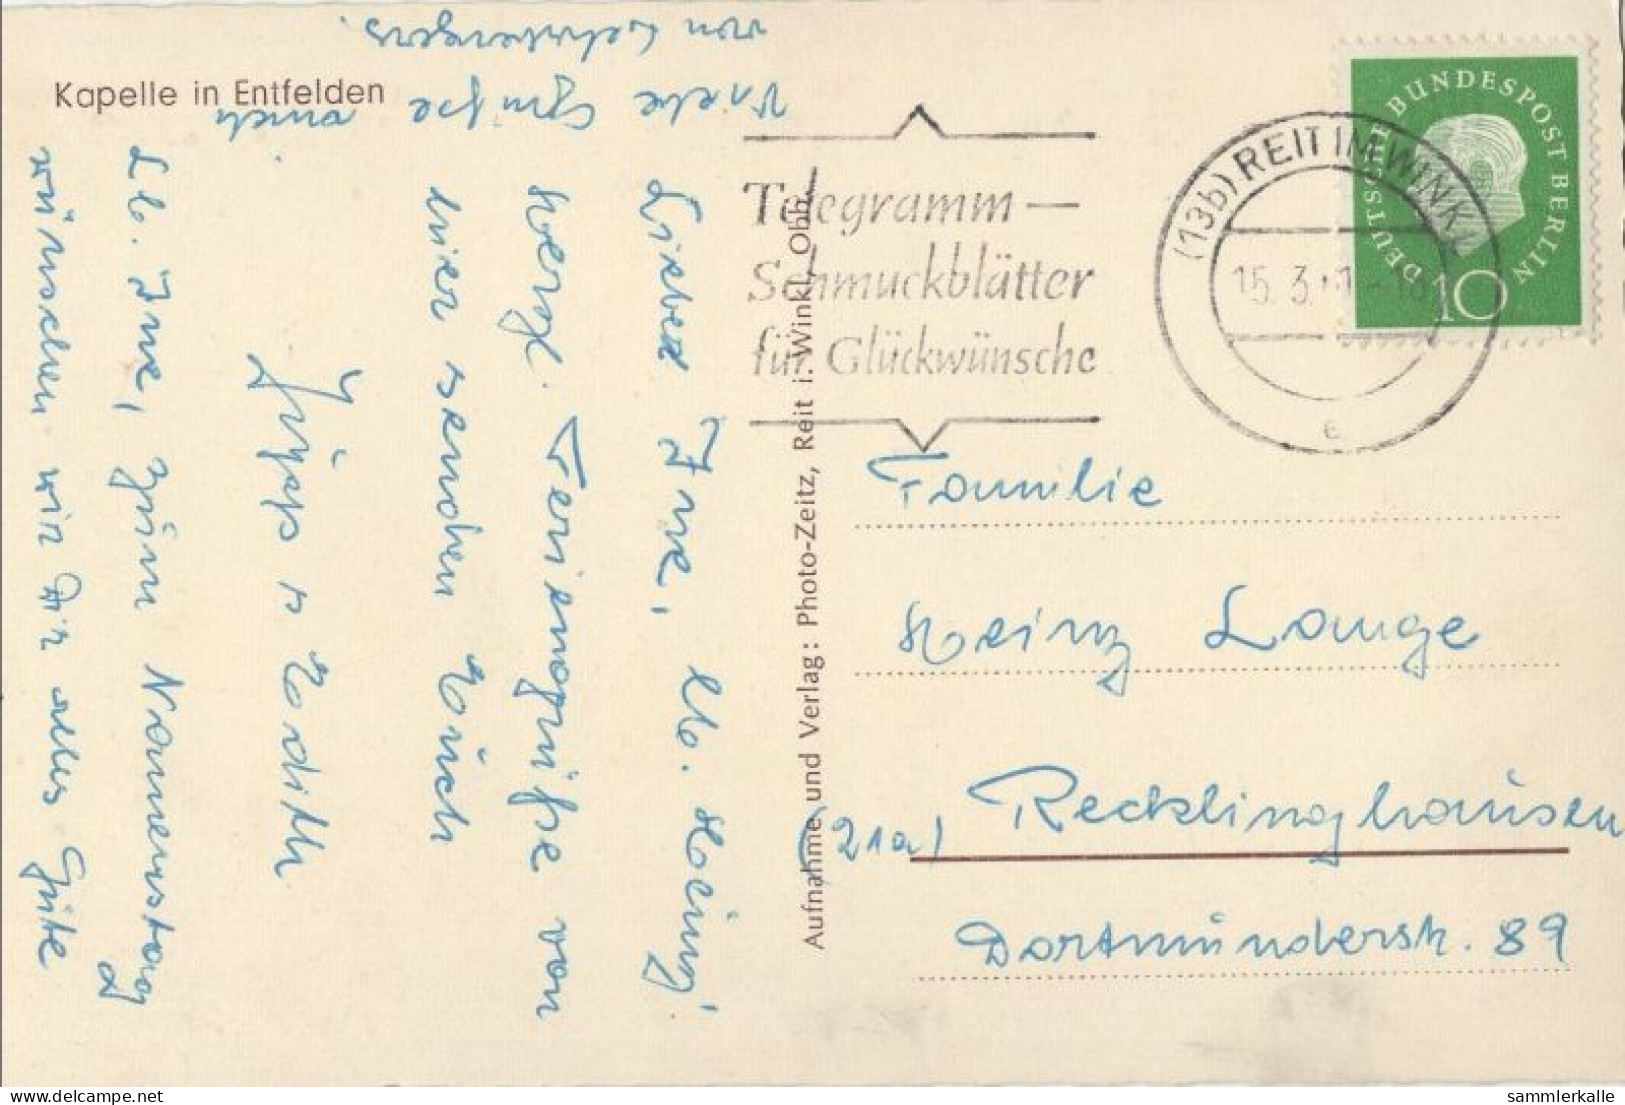 Kapelle in Entfelden
Lieber Ine, lb. Heinz,
herzl. Feriengrüße von
hier senden Euch
Jüpp u Edith
Lb. Ine, zum Namenstag
wünschen wir Dir alles Gute
Viele Grüße auch
von
Aufnahme und Verlag: Photo-Zeitz, Reit i. Winkl, Obb.
Telegramm —
Schmuckblätter
für Glückwünsche
(13b) REIT IM WINKL
15. 3.
e
DEUTSCHE BUNDESPOST BERLIN
10
Familie
Heinz Lange
(21a) Recklinghausen
Dortmunderstr. 89
delcampe.net
sammlerkalle